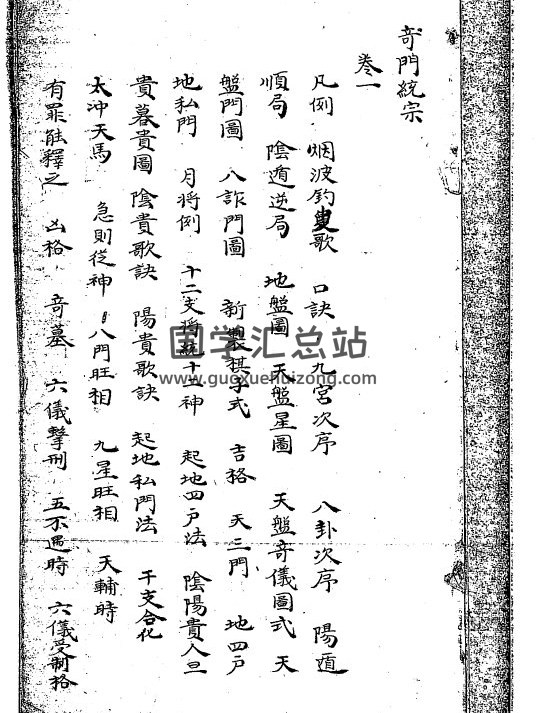 奇門統宗
卷一
凡例 烟波釣叟歌 口訣 九宮次序 八卦次序 陽遁
順局 陰遁逆局 地盤圖 天盤星圖 天盤奇儀圖式 天
盤門圖 八詐門圖 新製棋子式 吉格 天三門 地四戶
地私門 月将例 十二支将統十二神 起地四戶法 陰陽貴人旦
貴暮貴圖 陰貴歌訣 陽貴歌訣 起地私門法 干支合化
太冲天馬 急則從神 八門旺相 九星旺相 天輔時
有罪能釋之 凶格 奇墓 六儀擊刑 五不遇時 六儀受制格
国学汇总站
www.guoxuehuizong.com